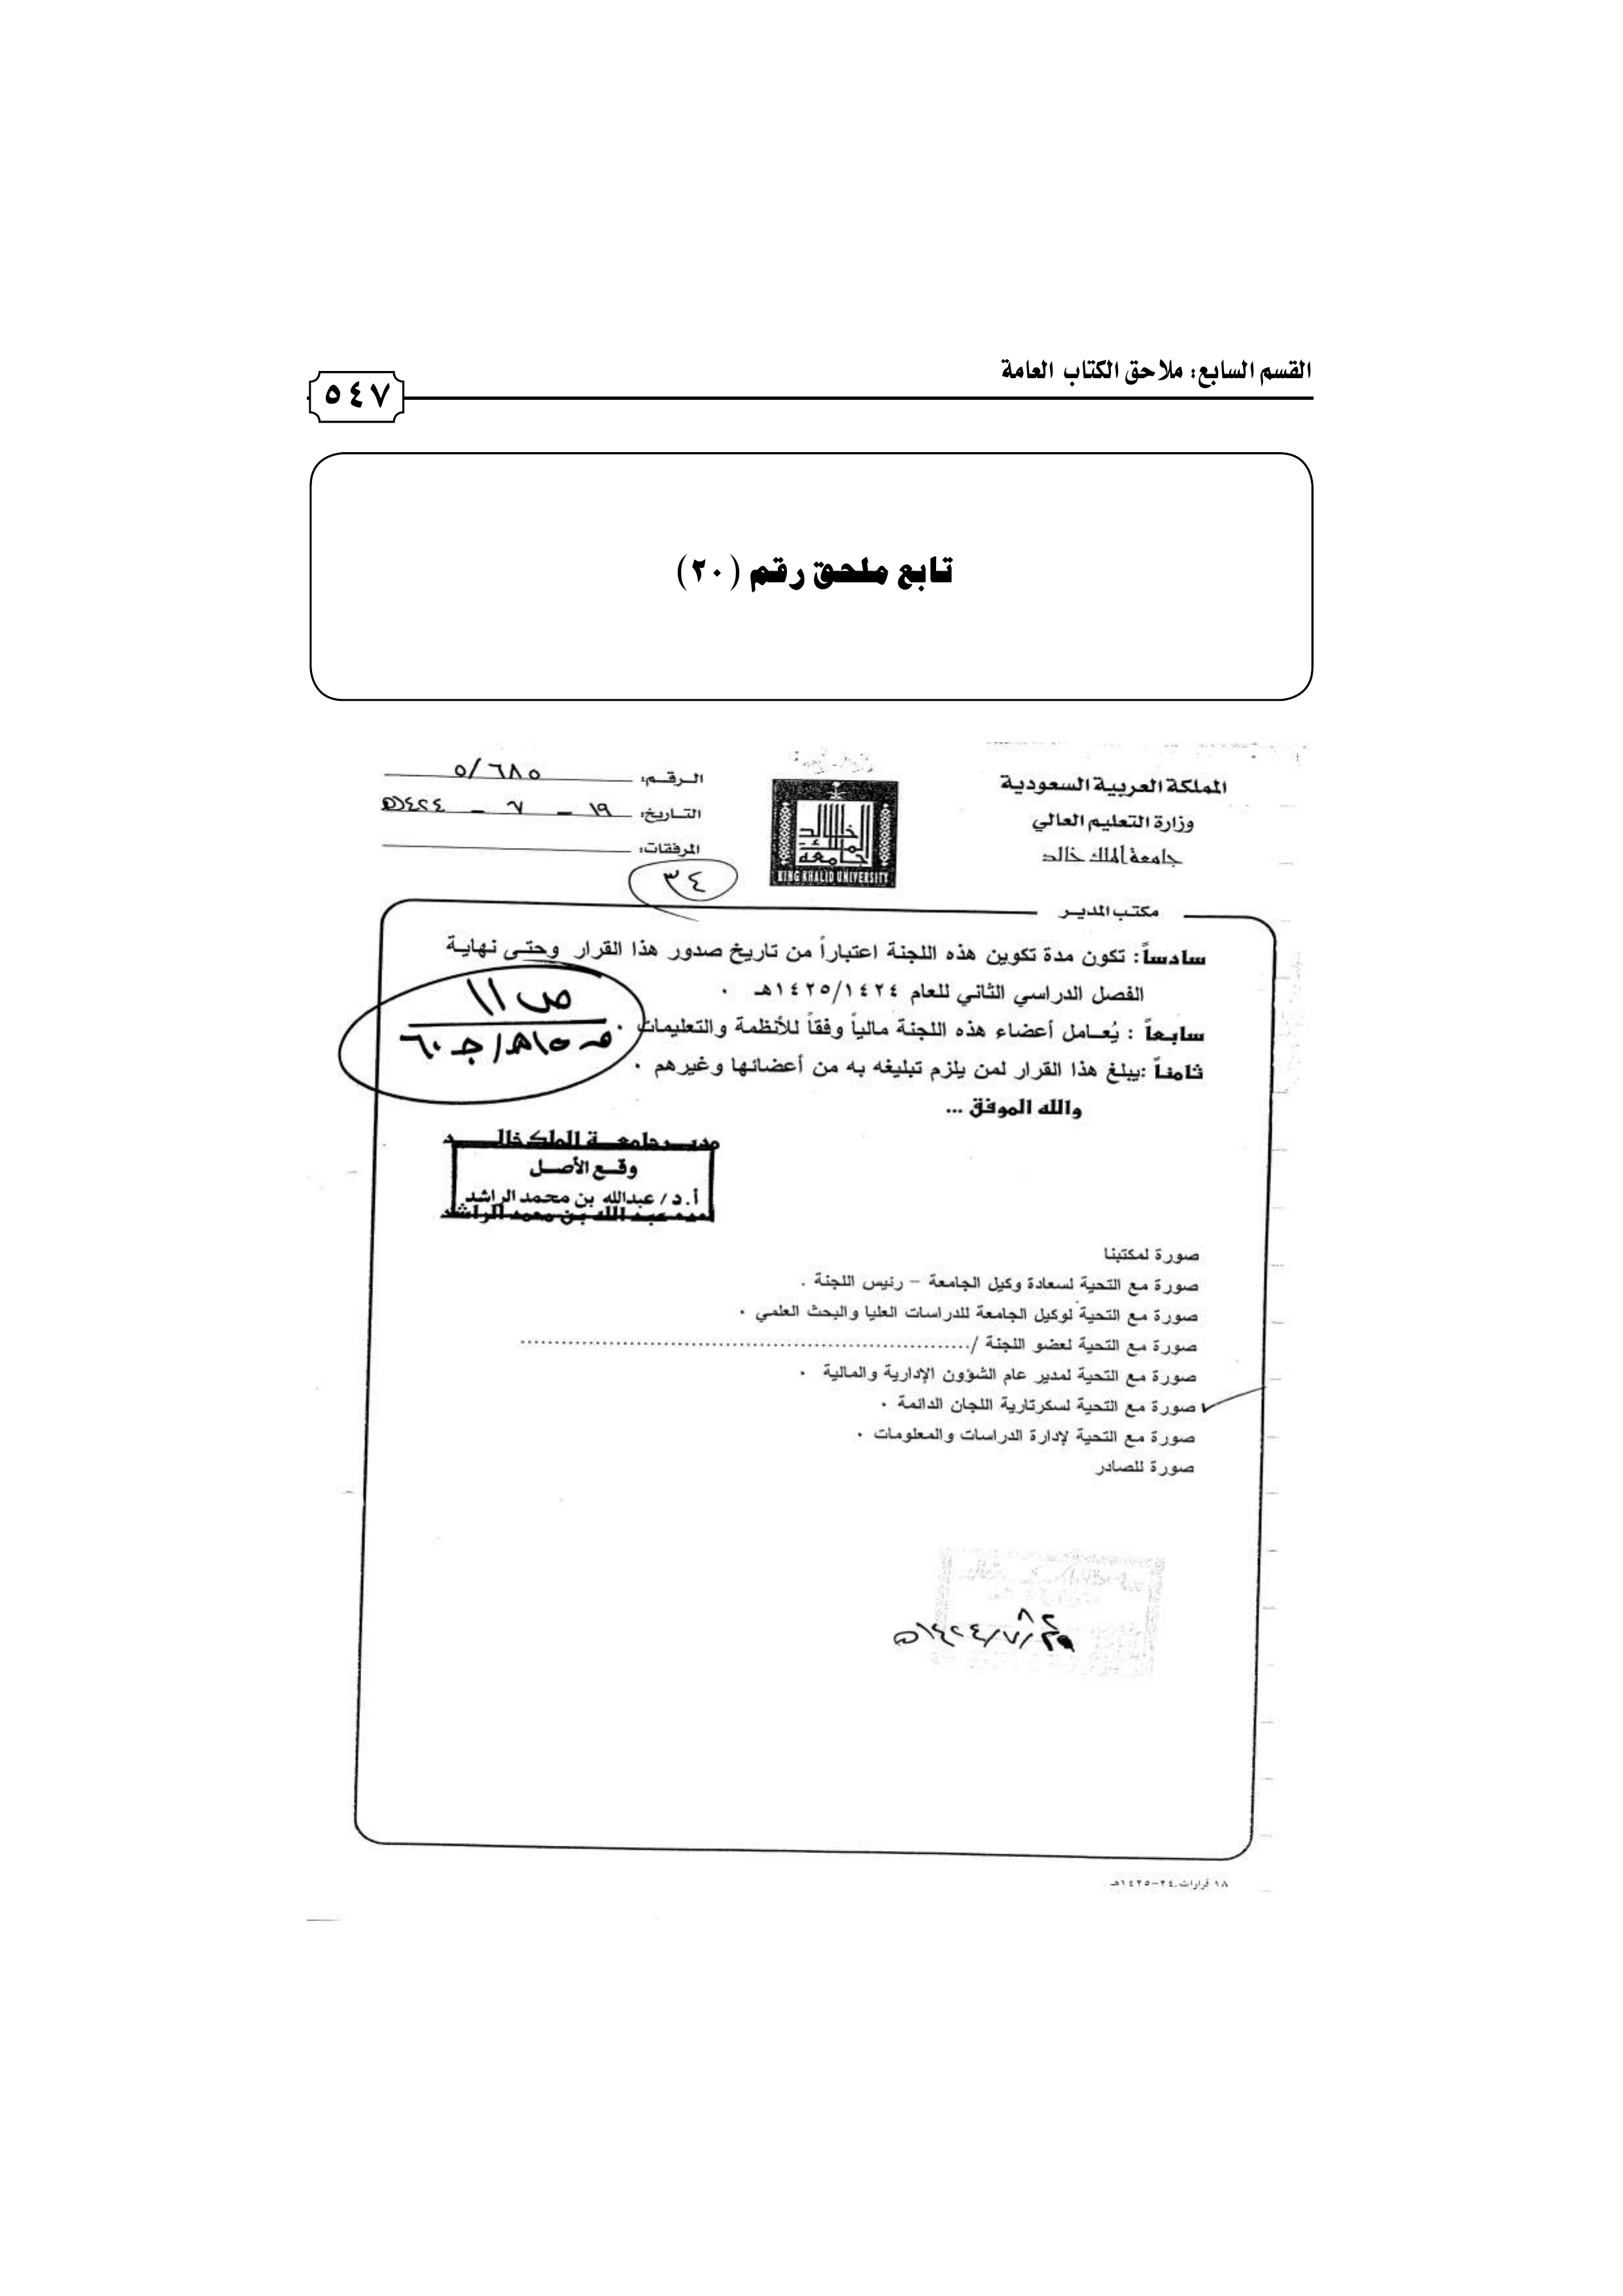 القسم السابع: ملاحق الكتاب العامة
٥٤٧
تابع ملحق رقم (٢٠)
المملكة العربية السعودية
وزارة التعليم العالي
جامعة الملك خالد
مكتب المدير
جامعة الملك خالد
KING KHALID UNIVERSITY
الرقم: ٥/٦٨٥
التاريخ: ١٩ - ٧ - ١٤٢٤هـ
المرفقات:
٣٤
سادساً: تكون مدة تكوين هذه اللجنة اعتباراً من تاريخ صدور هذا القرار وحتى نهاية
الفصل الدراسي الثاني للعام ١٤٢٥/١٤٢٤هـ .
سابعاً : يُعامل أعضاء هذه اللجنة مالياً وفقاً للأنظمة والتعليمات .
ثامناً :يبلغ هذا القرار لمن يلزم تبليغه به من أعضائها وغيرهم .
ص ١١
والله الموفق ...
مدير جامعة الملك خالد
وقع الأصل
أ.د / عبدالله بن محمد الراشد
عبد الله بن محمد الراشد
صورة لمكتبنا
صورة مع التحية لسعادة وكيل الجامعة – رئيس اللجنة .
صورة مع التحية لوكيل الجامعة للدراسات العليا والبحث العلمي .
صورة مع التحية لعضو اللجنة /...............................................................
صورة مع التحية لمدير عام الشؤون الإدارية والمالية .
صورة مع التحية لسكرتارية اللجان الدائمة .
صورة مع التحية لإدارة الدراسات والمعلومات .
صورة للصادر
١٨ قرارات.٢٤-١٤٢٥هـ